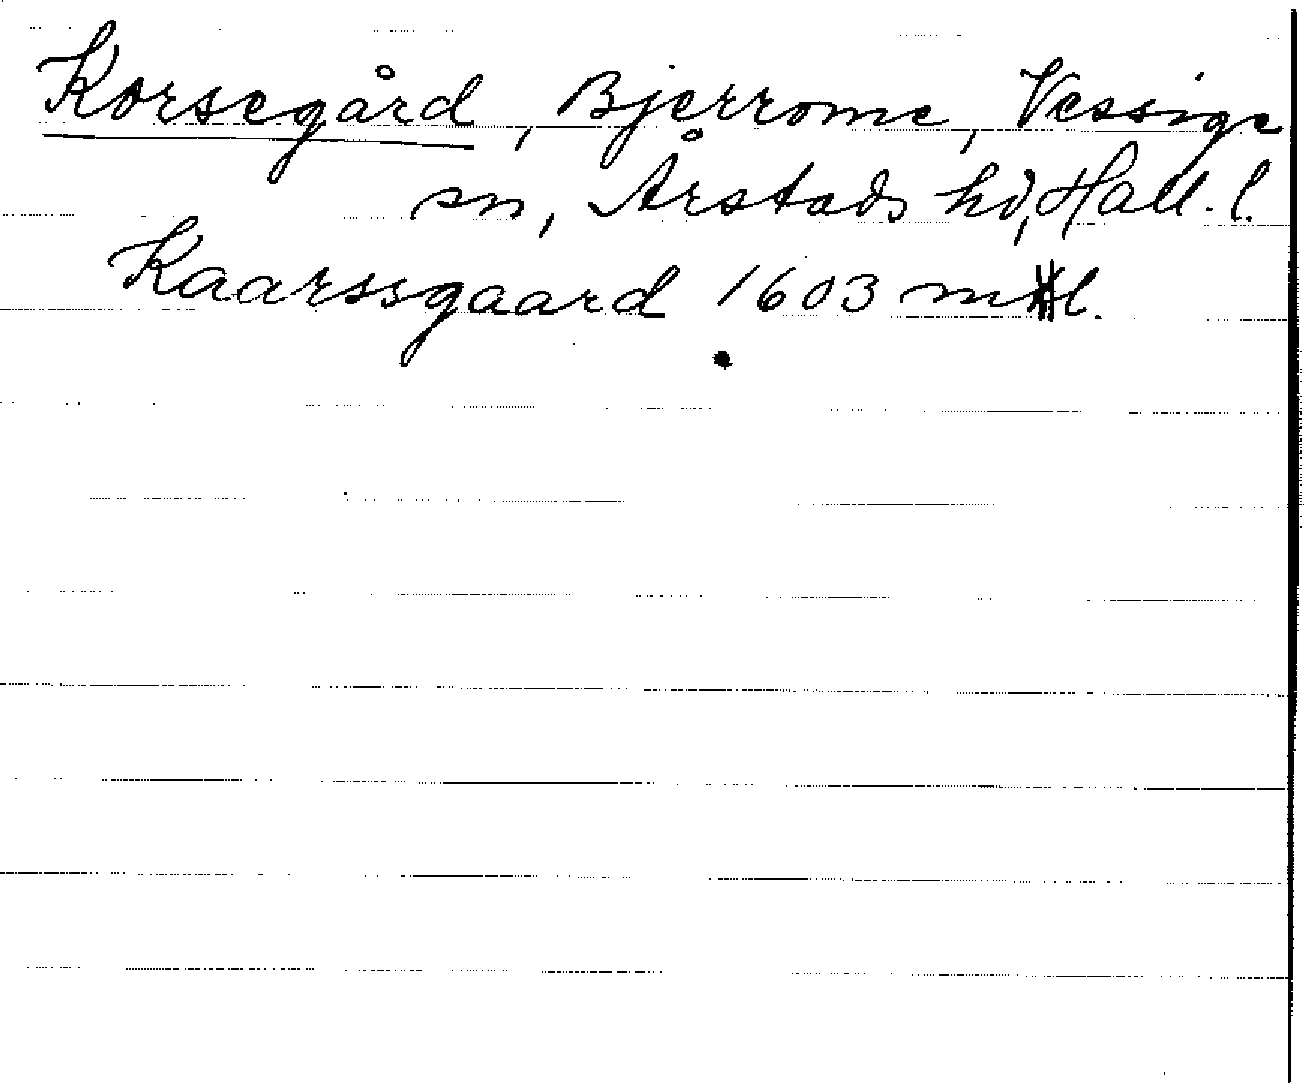 Korsegård, Bjerrome, Vessige
sn, Årstads hd, Hall. l.
Kaarssgaard 1603